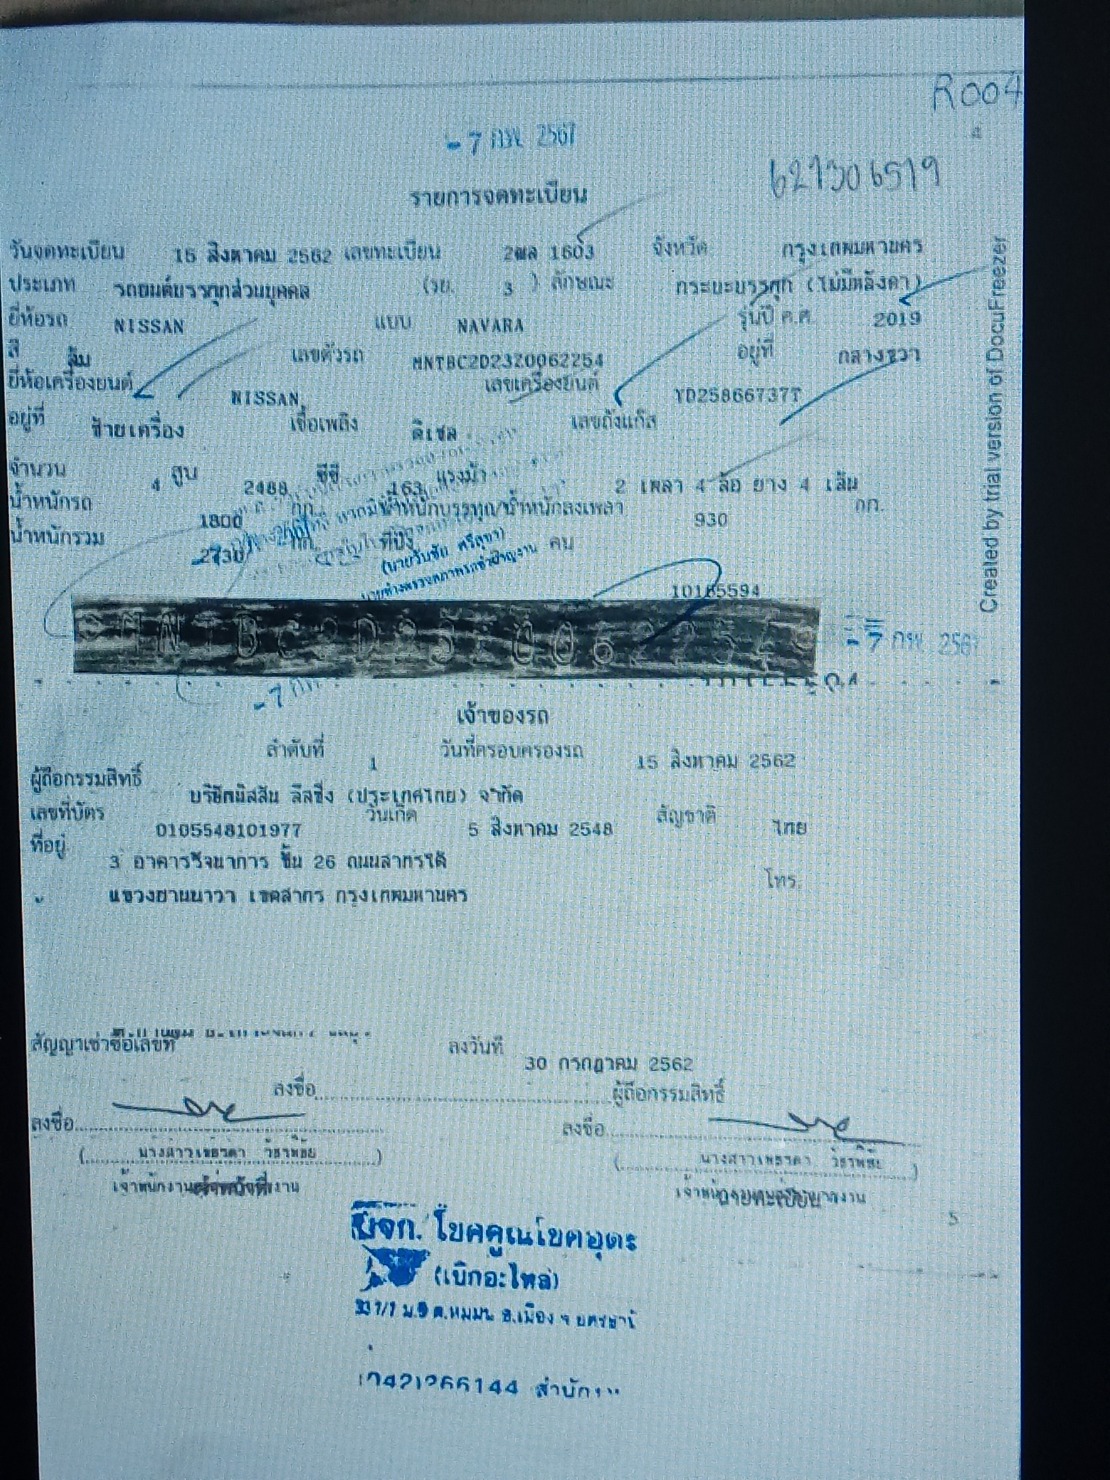 R004
- 7 ก.พ. 2567
4
621306519
รายการจดทะเบียน
วันจดทะเบียน 15 สิงหาคม 2562 เลขทะเบียน 2ฒล 1603 จังหวัด กรุงเทพมหานคร
ประเภท รถยนต์บรรทุกส่วนบุคคล (รย. 3 ) ลักษณะ กระบะบรรทุก (ไม่มีหลังคา)
ยี่ห้อรถ NISSAN แบบ NAVARA รุ่นปี ค.ศ. 2019
สี ส้ม เลขตัวรถ MNTBC2D23Z0062254 อยู่ที่ กลางขวา
ยี่ห้อเครื่องยนต์ NISSAN เลขเครื่องยนต์ YD25866737T
อยู่ที่ ซ้ายเครื่อง เชื้อเพลิง ดีเซล เลขถังแก๊ส
จำนวน 4 สูบ 2488 ซีซี 163 แรงม้า 2 เพลา 4 ล้อ ยาง 4 เส้น
น้ำหนักรถ 1800 กก. น้ำหนักบรรทุก/น้ำหนักลงเพลา 930 กก.
น้ำหนักรวม 2730 กก. ที่นั่ง คน
(นายวันชัย ศรีสุขา)
นายช่างตรวจสภาพรถชำนาญงาน
10185594
- 7 ก.พ. 2567
- 7 ก.พ.
เจ้าของรถ
ลำดับที่ 1 วันที่ครอบครองรถ 15 สิงหาคม 2562
ผู้ถือกรรมสิทธิ์ บริษัทนิสสัน ลีสซิ่ง (ประเทศไทย) จำกัด
เลขที่บัตร 0105548101977 วันเกิด 5 สิงหาคม 2548 สัญชาติ ไทย
ที่อยู่ 3 อาคารรัจนาการ ชั้น 26 ถนนสาทรใต้
แขวงยานนาวา เขตสาทร กรุงเทพมหานคร โทร.
สัญญาเช่าซื้อเลขที่ ลงวันที่ 30 กรกฎาคม 2562
ลงชื่อ ผู้ถือกรรมสิทธิ์
ลงชื่อ ลงชื่อ
เจ้าพนักงานเจ้าหน้าที่
5
หจก. โชคคูณโชคอุดร
(เบิกอะไหล่)
Created by trial version of DocuFreezer